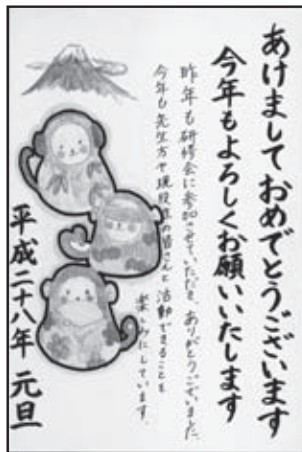 あけましておめでとうございます
今年もよろしくお願いいたします
昨年も研修会に参加させていただき、ありがとうございました。
今年も先生方や現役生の皆さんと活動できることを
楽しみにしています。
平成二十八年 元旦